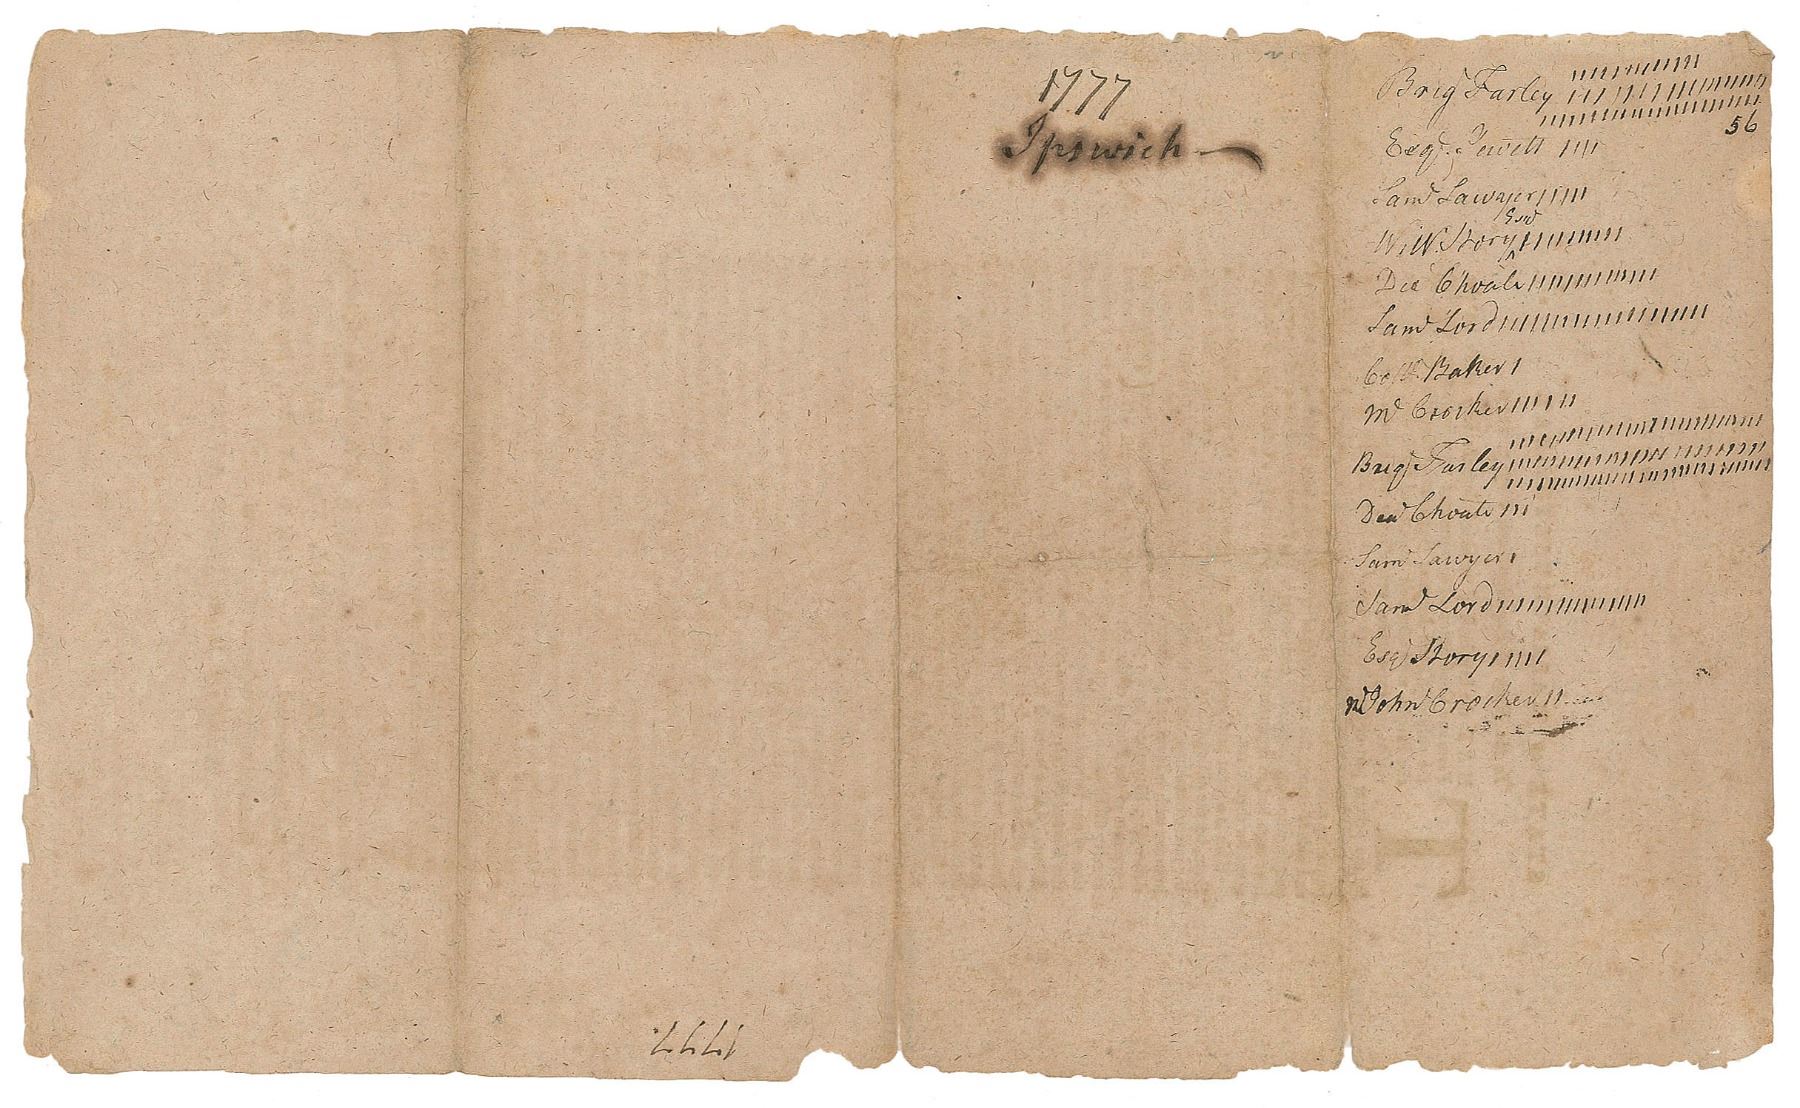 1777
Ipswich
Brigr Farley
56
Esqr Jewett
Saml Sawyer
Esqr
Wm Story
Dea Choate
Saml Lord
Coll Baker
Mr Crocker
Brigr Farley
Dean Choate
Saml Sawyer
Saml Lord
Esqr Story
Mr John Crocker
1777